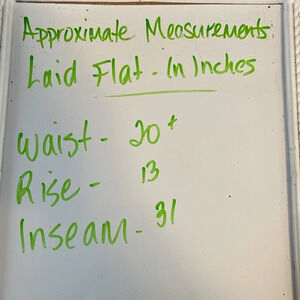 Approximate Measurements
Laid Flat - In Inches
Waist - 20+
Rise - 13
Inseam - 31